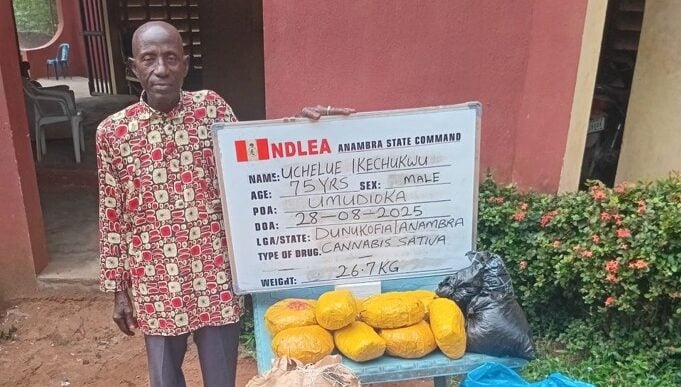 NDLEA ANAMBRA STATE COMMAND
NAME: UCHELUE IKECHUKWU
AGE: 75YRS SEX: MALE
POA: UMUDIOKA
DOA: 28-08-2025
LGA/STATE: DUNUKOFIA/ANAMBRA
TYPE OF DRUG: CANNABIS SATIVA
WEIGHT: 26.7KG